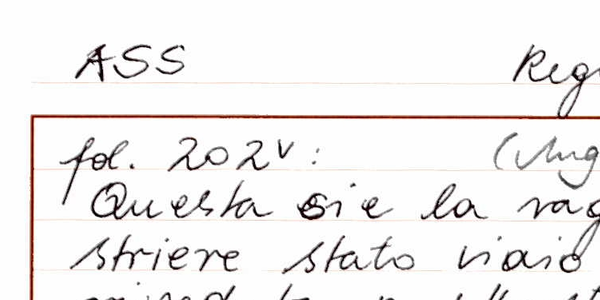 ASS Reg
fol. 202v:
Questa sie la rag
striere stato viaio